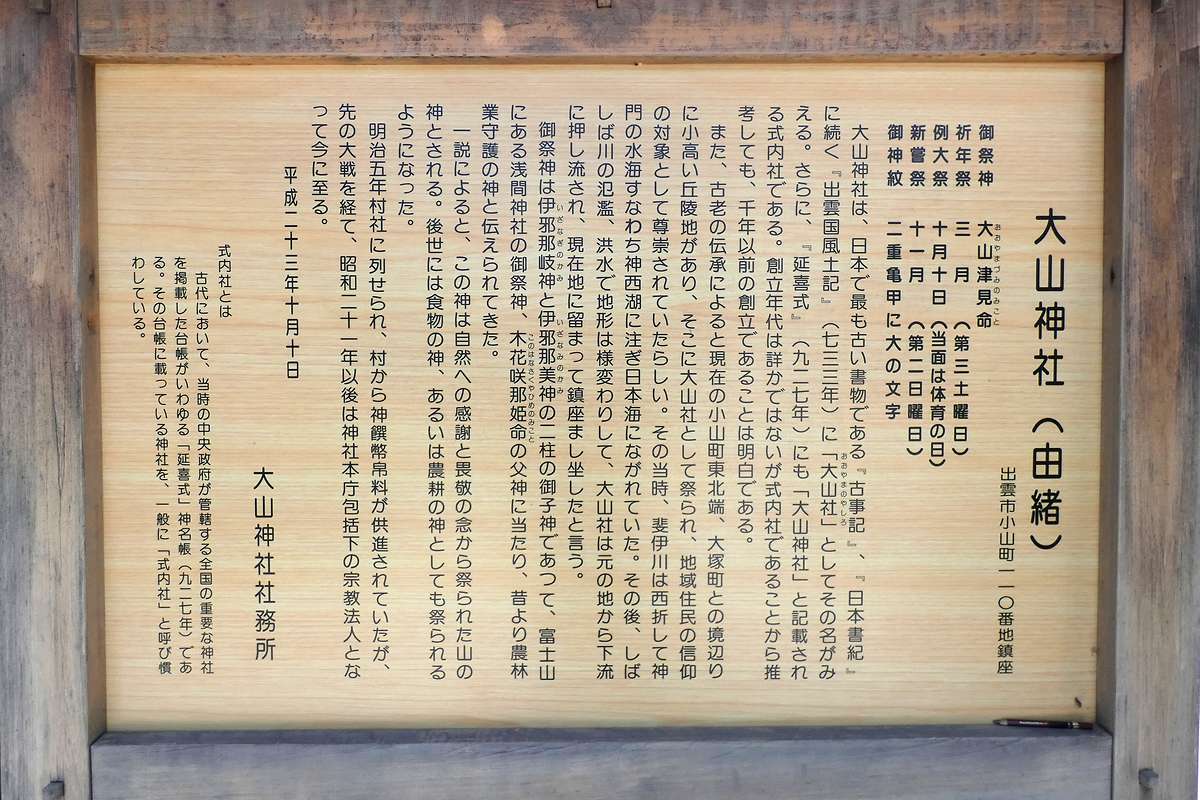 大山神社（由緒）
出雲市小山町一一〇番地鎮座
御祭神　大山津見命
おおやまづみのみこと
祈年祭　三　月　（第三土曜日）
例大祭　十月十日（当面は体育の日）
新嘗祭　十一月　（第二日曜日）
御神紋　二重亀甲に大の文字
大山神社は、日本で最も古い書物である『古事記』、『日本書紀』
に続く『出雲国風土記』（七三三年）に「大山社」としてその名がみ
おおやまのやしろ
える。さらに、『延喜式』（九二七年）にも「大山神社」と記載され
る式内社である。創立年代は詳かではないが式内社であることから推
考しても、千年以前の創立であることは明白である。
また、古老の伝承によると現在の小山町東北端、大塚町との境辺り
に小高い丘陵地があり、そこに大山社として祭られ、地域住民の信仰
の対象として尊崇されていたらしい。その当時、斐伊川は西折して神
門の水海すなわち神西湖に注ぎ日本海にながれていた。その後、しば
しば川の氾濫、洪水で地形は様変わりして、大山社は元の地から下流
に押し流され、現在地に留まって鎮座まし坐したと言う。
御祭神は伊邪那岐神と伊邪那美神の二柱の御子神であつて、富士山
いざなぎのかみ　いざなみのかみ
にある浅間神社の御祭神、木花咲那姫命の父神に当たり、昔より農林
このはなさくやひめのみこと
業守護の神と伝えられてきた。
一説によると、この神は自然への感謝と畏敬の念から祭られた山の
神とされる。後世には食物の神、あるいは農耕の神としても祭られる
ようになった。
明治五年村社に列せられ、村から神饌幣帛料が供進されていたが、
先の大戦を経て、昭和二十一年以後は神社本庁包括下の宗教法人とな
って今に至る。
平成二十三年十月十日
大山神社社務所
式内社とは
古代において、当時の中央政府が管轄する全国の重要な神社
を掲載した台帳がいわゆる「延喜式」神名帳（九二七年）であ
る。その台帳に載っている神社を、一般に「式内社」と呼び慣
わしている。